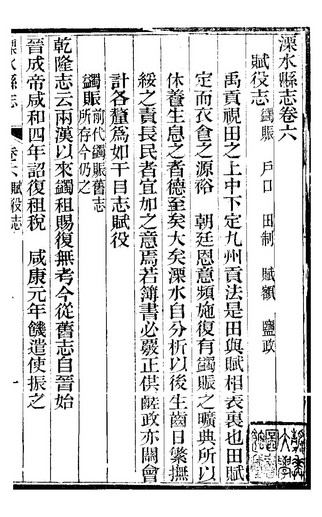 溧水縣志卷六
賦役志 蠲賑 戶口 田制 賦額 鹽政
禹貢視田之上中下定九州貢法是田與賦相表裏也田賦
定而衣食之源裕 朝廷恩意頻施復有蠲賑之曠典所以
休養生息之者德至矣大矣溧水自分析以後生齒日蕃撫
綏之責長民者宜加之意焉若簿書必嚴正供鹺政亦關會
計各釐爲如干目志賦役
蠲賑 前代蠲賑舊志
所存今仍之
乾隆志云兩漢以來蠲租賜復無考今從舊志自晉始
晉成帝咸和四年詔復租稅 咸康元年饑遣使振之
溧水縣志 卷六 賦役志 一